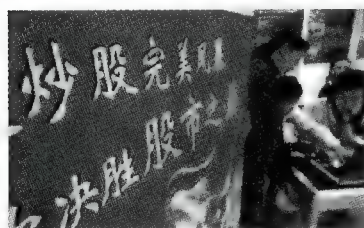 炒股完美
决胜股市之